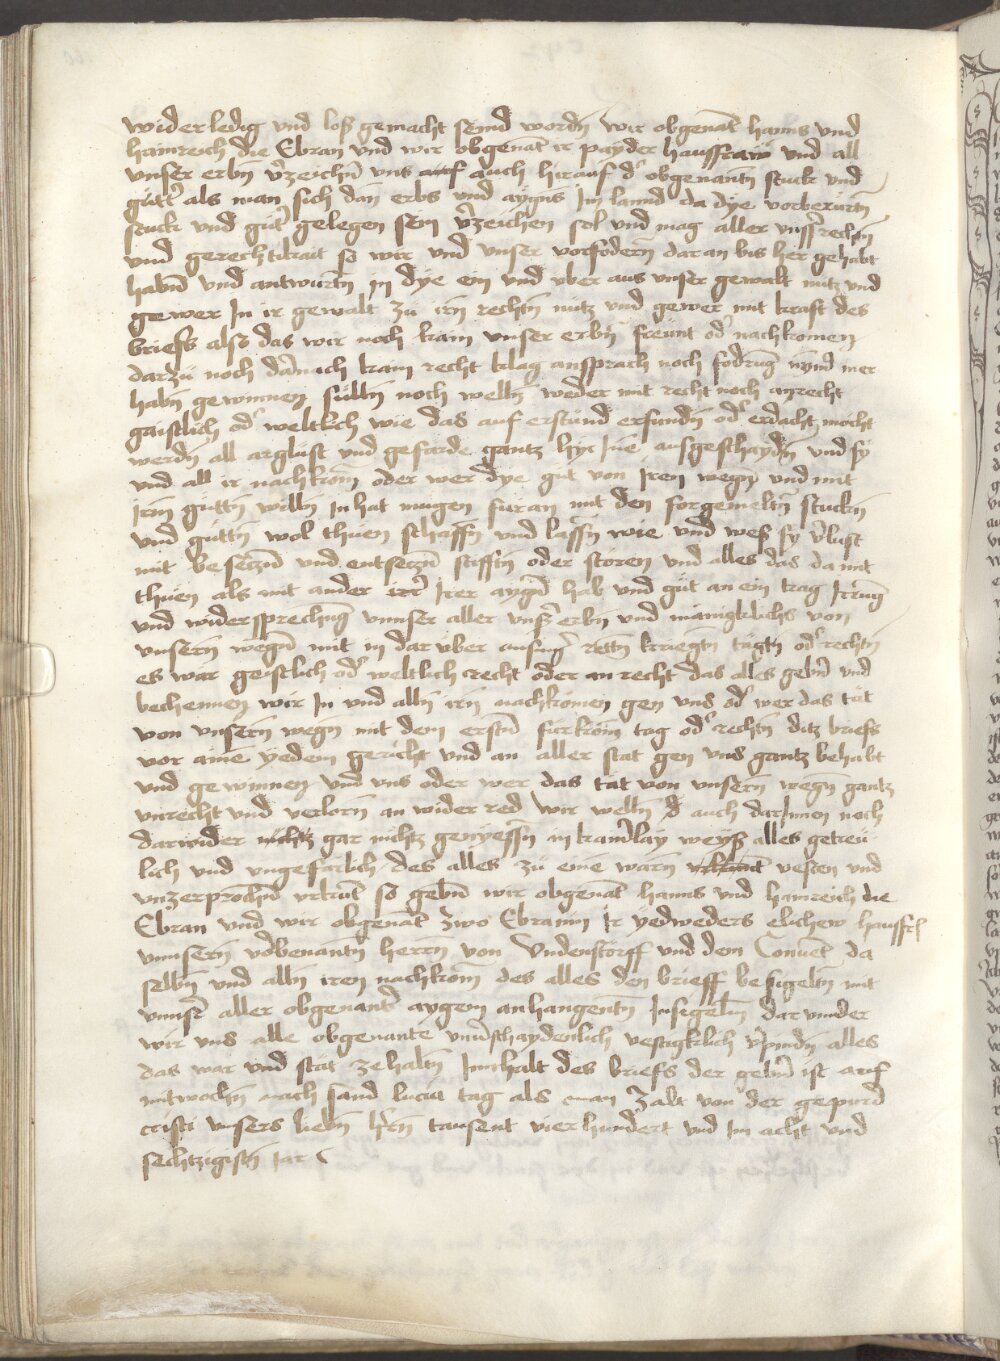 wider ledig vnd loß gemacht seind wordn̄ wir obgenāt hanns vnd
hainreich die Ebran vnd wir obgenāt ir payder haussfraw vnd all
vnser erbn̄ v̓zeichn̄ vns auf auch hirauf d̓ obgenantn̄ stuckt vnd
gütt̓ als man sich dan̄ erbs vnd aygns Im lannd da dye vorberurtn̄
stuck vnd güt̓ gelegen sein v̓zeichen sol vnd mag aller vnss̓ rechtn̄
vnd gerechtikait so wir vnd vnser vorfodern̄ daran bis her gehabt
habn̄ vnd antwurtn̄ in dÿe ein vnd vber aus vnser gewalt nutz vnd
gewer In ir gewalt zu irn̄ rechtn̄ nutz vnd gewer mit kraft des
briefs also das wir noch kain vnser erbn̄ freunt od̓ nachkomen
darzu noch dar̓nach kain recht klag ansprach noch fodrūg nÿmd mer
habn̄ gewinnen sülln̄ noch welln̄ weder mit recht noch anrecht
gaistlich od̓ weltlich wie das auf erstund erfundn̄ od̓ erdacht möcht
werdn̄ all arglist vnd gefarde gantz hyr Jnē ausgeschaydn̄ vnd sÿ
vnd all ir nachkom̄ oder wer dÿe güt von Jren wegn̄ vnd mit
irm gutin willn̄ In hat mügen furan mit den forgemeltn̄ stuckn̄
vnd güttn̄ wol thuen schaffn̄ vnd lassn̄ wie vnd weß sÿ v̓lust
mit besetzn̄ vnd entsetzn̄ stifftn̄ oder storen vnd alles das da mit
thuen als mit ander irr̓ Jrer aygn̄ hab vnd güt an ein trag Jrrūg
vnd widersprechūg vnnser aller vnss̓ erbn̄ vnd mänigklichs von
vnsern̄ wegn̄ mit in dar vber krÿegtn̄ tägtn̄ od̓ rechtn̄
es wär geistlich od̓ weltlich recht oder an recht das alles gebn̄ vnd
bechennen wir In vnd alln̄ irn̄ nachkomen gen vns od̓ wer das tät
von vnsern̄ wegn̄ mit dem erstn̄ fürkom̄ tag od̓ rechtn̄ ditz briefs
vor aine ÿedem gericht vnd an aller stat gen vns gantz behabt
vnd gewinnen vnd vns oder wer das tät von vnsern̄ wegn̄ gantz
vnrecht vnd verlorn̄ an wider red wir welln̄ auch darjnnen noch
darwider nichtz gar nichtz genÿessn̄ in kain̓lay weÿß alles getreü
lich vnd vngefärlich des alles zu eine warn̄ vrkunt vesten vnd
vnzerprochn̄ vrkunt so gebn̄ wir obgenāt hanns vnd hainreich die
Ebran vnd wir obgenāt zwo Ebranin Ir ÿedweders elichew haussfr̄
vnnsern̄ vobenantn̄ herrn̄ von Vndenstorff vnd dem Conuēt da
selbn̄ vnd alln̄ iren nachkom̄ des alles den brieff besigeltn̄ mit
vnnss̓ aller obgenant̓ aygem anhangentn̄ Insegeln̄ dar vnnder
wir vns alle obgenante vnu̓schaydenlich vestigklich v̓pindn̄ alles
das war vnd stät zehaltn̄ Innhalt des briefs der gebn̄ ist auf
mitwochn̄ nach sand lucia tag als man zalt von der gepurd
cristi vnsers liebn̄ hern̄ tausent vierhundert vnd im acht vnd
sechtzigistn̄ iar